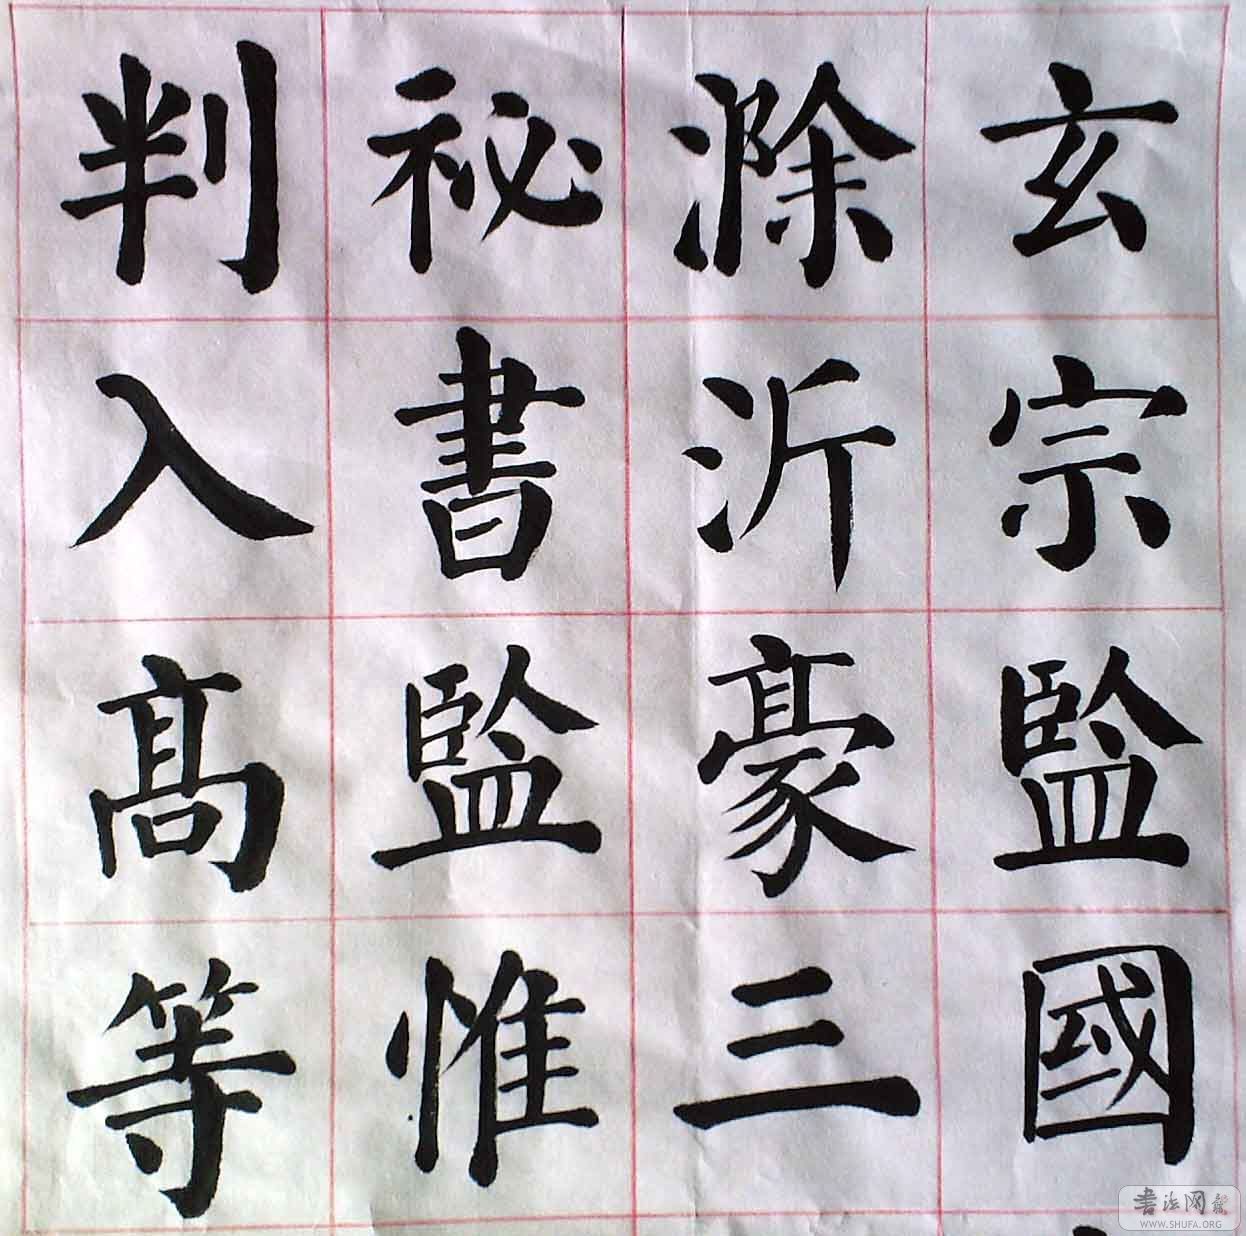 玄宗監國
滁沂豪三
祕書監惟
判入高等
书法网
WWW.SHUFA.ORG